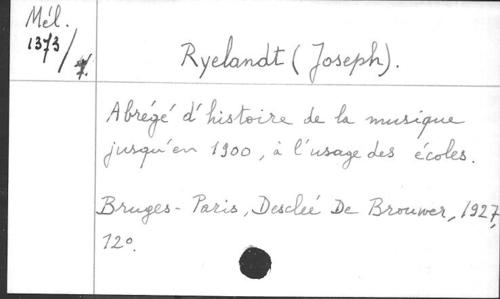 Mél.
1373/7.
Ryelandt (Joseph).
Abrégé d'histoire de la musique
jusqu'en 1900, à l'usage des écoles.
Bruges - Paris, Desclée De Brouwer, 1927,
12º.